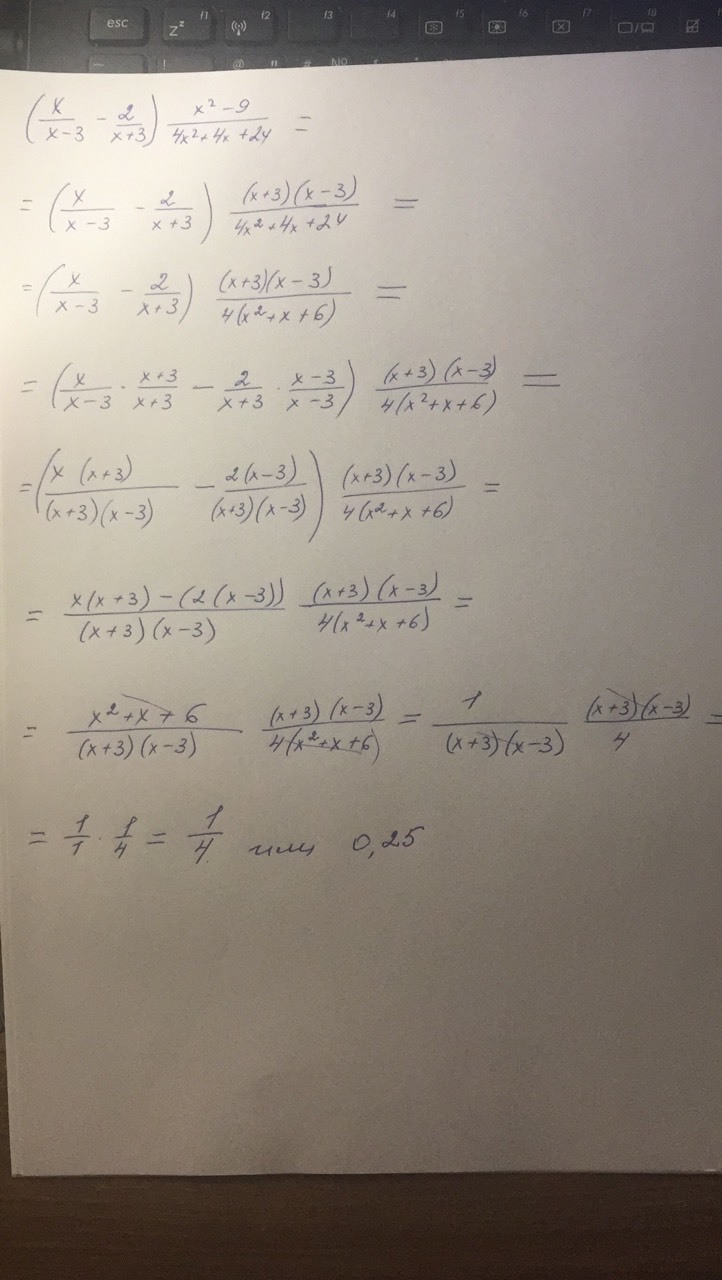 esc z^z f1 f2 f3 f4 f5 f6 f7 f8
! @ " № 
(x/(x-3) - 2/(x+3)) (x²-9)/(4x²+4x+24) =
= (x/(x-3) - 2/(x+3)) ((x+3)(x-3))/(4x²+4x+24) =
= (x/(x-3) - 2/(x+3)) ((x+3)(x-3))/(4(x²+x+6)) =
= (x/(x-3) · (x+3)/(x+3) - 2/(x+3) · (x-3)/(x-3)) ((x+3)(x-3))/(4(x²+x+6)) =
= ((x(x+3))/((x+3)(x-3)) - (2(x-3))/((x+3)(x-3))) ((x+3)(x-3))/(4(x²+x+6)) =
= (x(x+3)-(2(x-3)))/((x+3)(x-3)) ((x+3)(x-3))/(4(x²+x+6)) =
= (x²+x+6)/((x+3)(x-3)) ((x+3)(x-3))/(4(x²+x+6)) = 1/((x+3)(x-3)) ((x+3)(x-3))/4 =
= 1/1 · 1/4 = 1/4 или 0,25